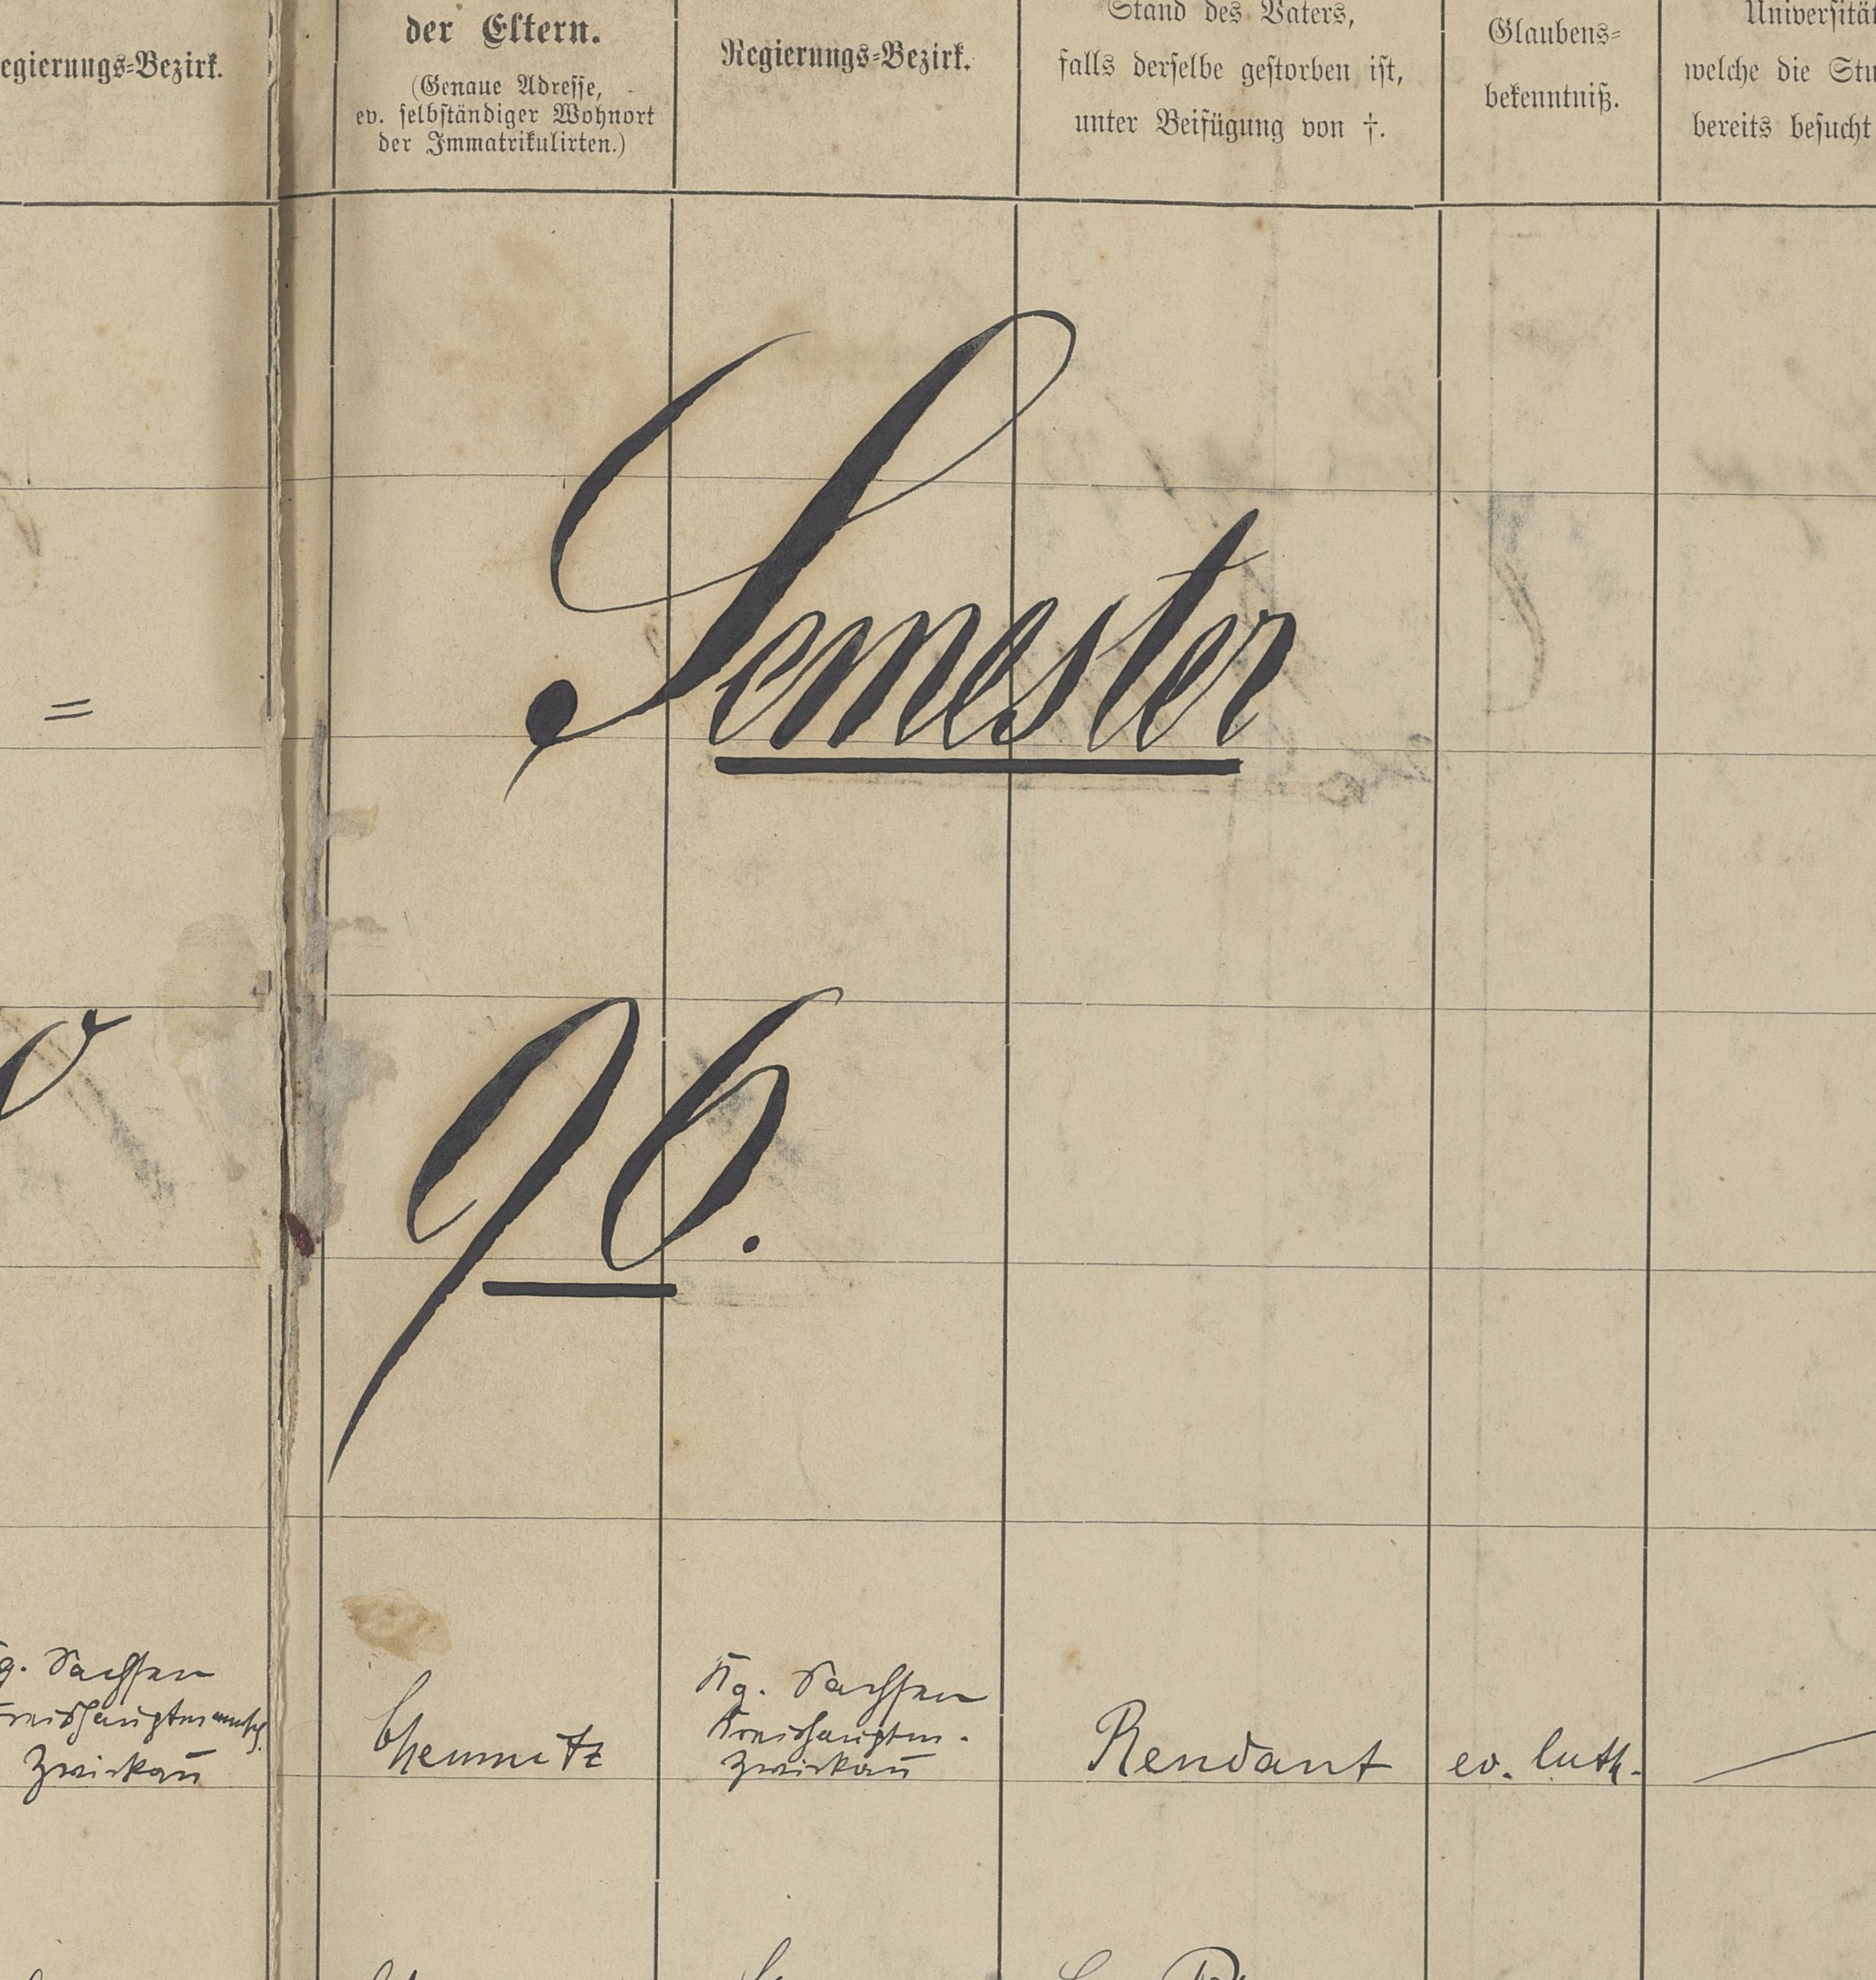 egierungs=Bezirk.
der Eltern.
(Genaue Adresse,
ev. selbständiger Wohnort
der Immatrikulirten.)
Regierungs=Bezirk.
Stand des Vaters,
falls derselbe gestorben ist,
unter Beifügung von †.
Glaubens=
bekenntniß.
Universität
welche die Stu
bereits besucht
Semester
=
96.
g. Sachsen
Kreishauptmannsch.
Zwickau
Chemnitz
Kg. Sachsen
Kreishauptm.
Zwickau
Rendant
ev. luth.